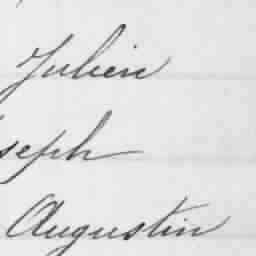 Julien
seph
Augustin